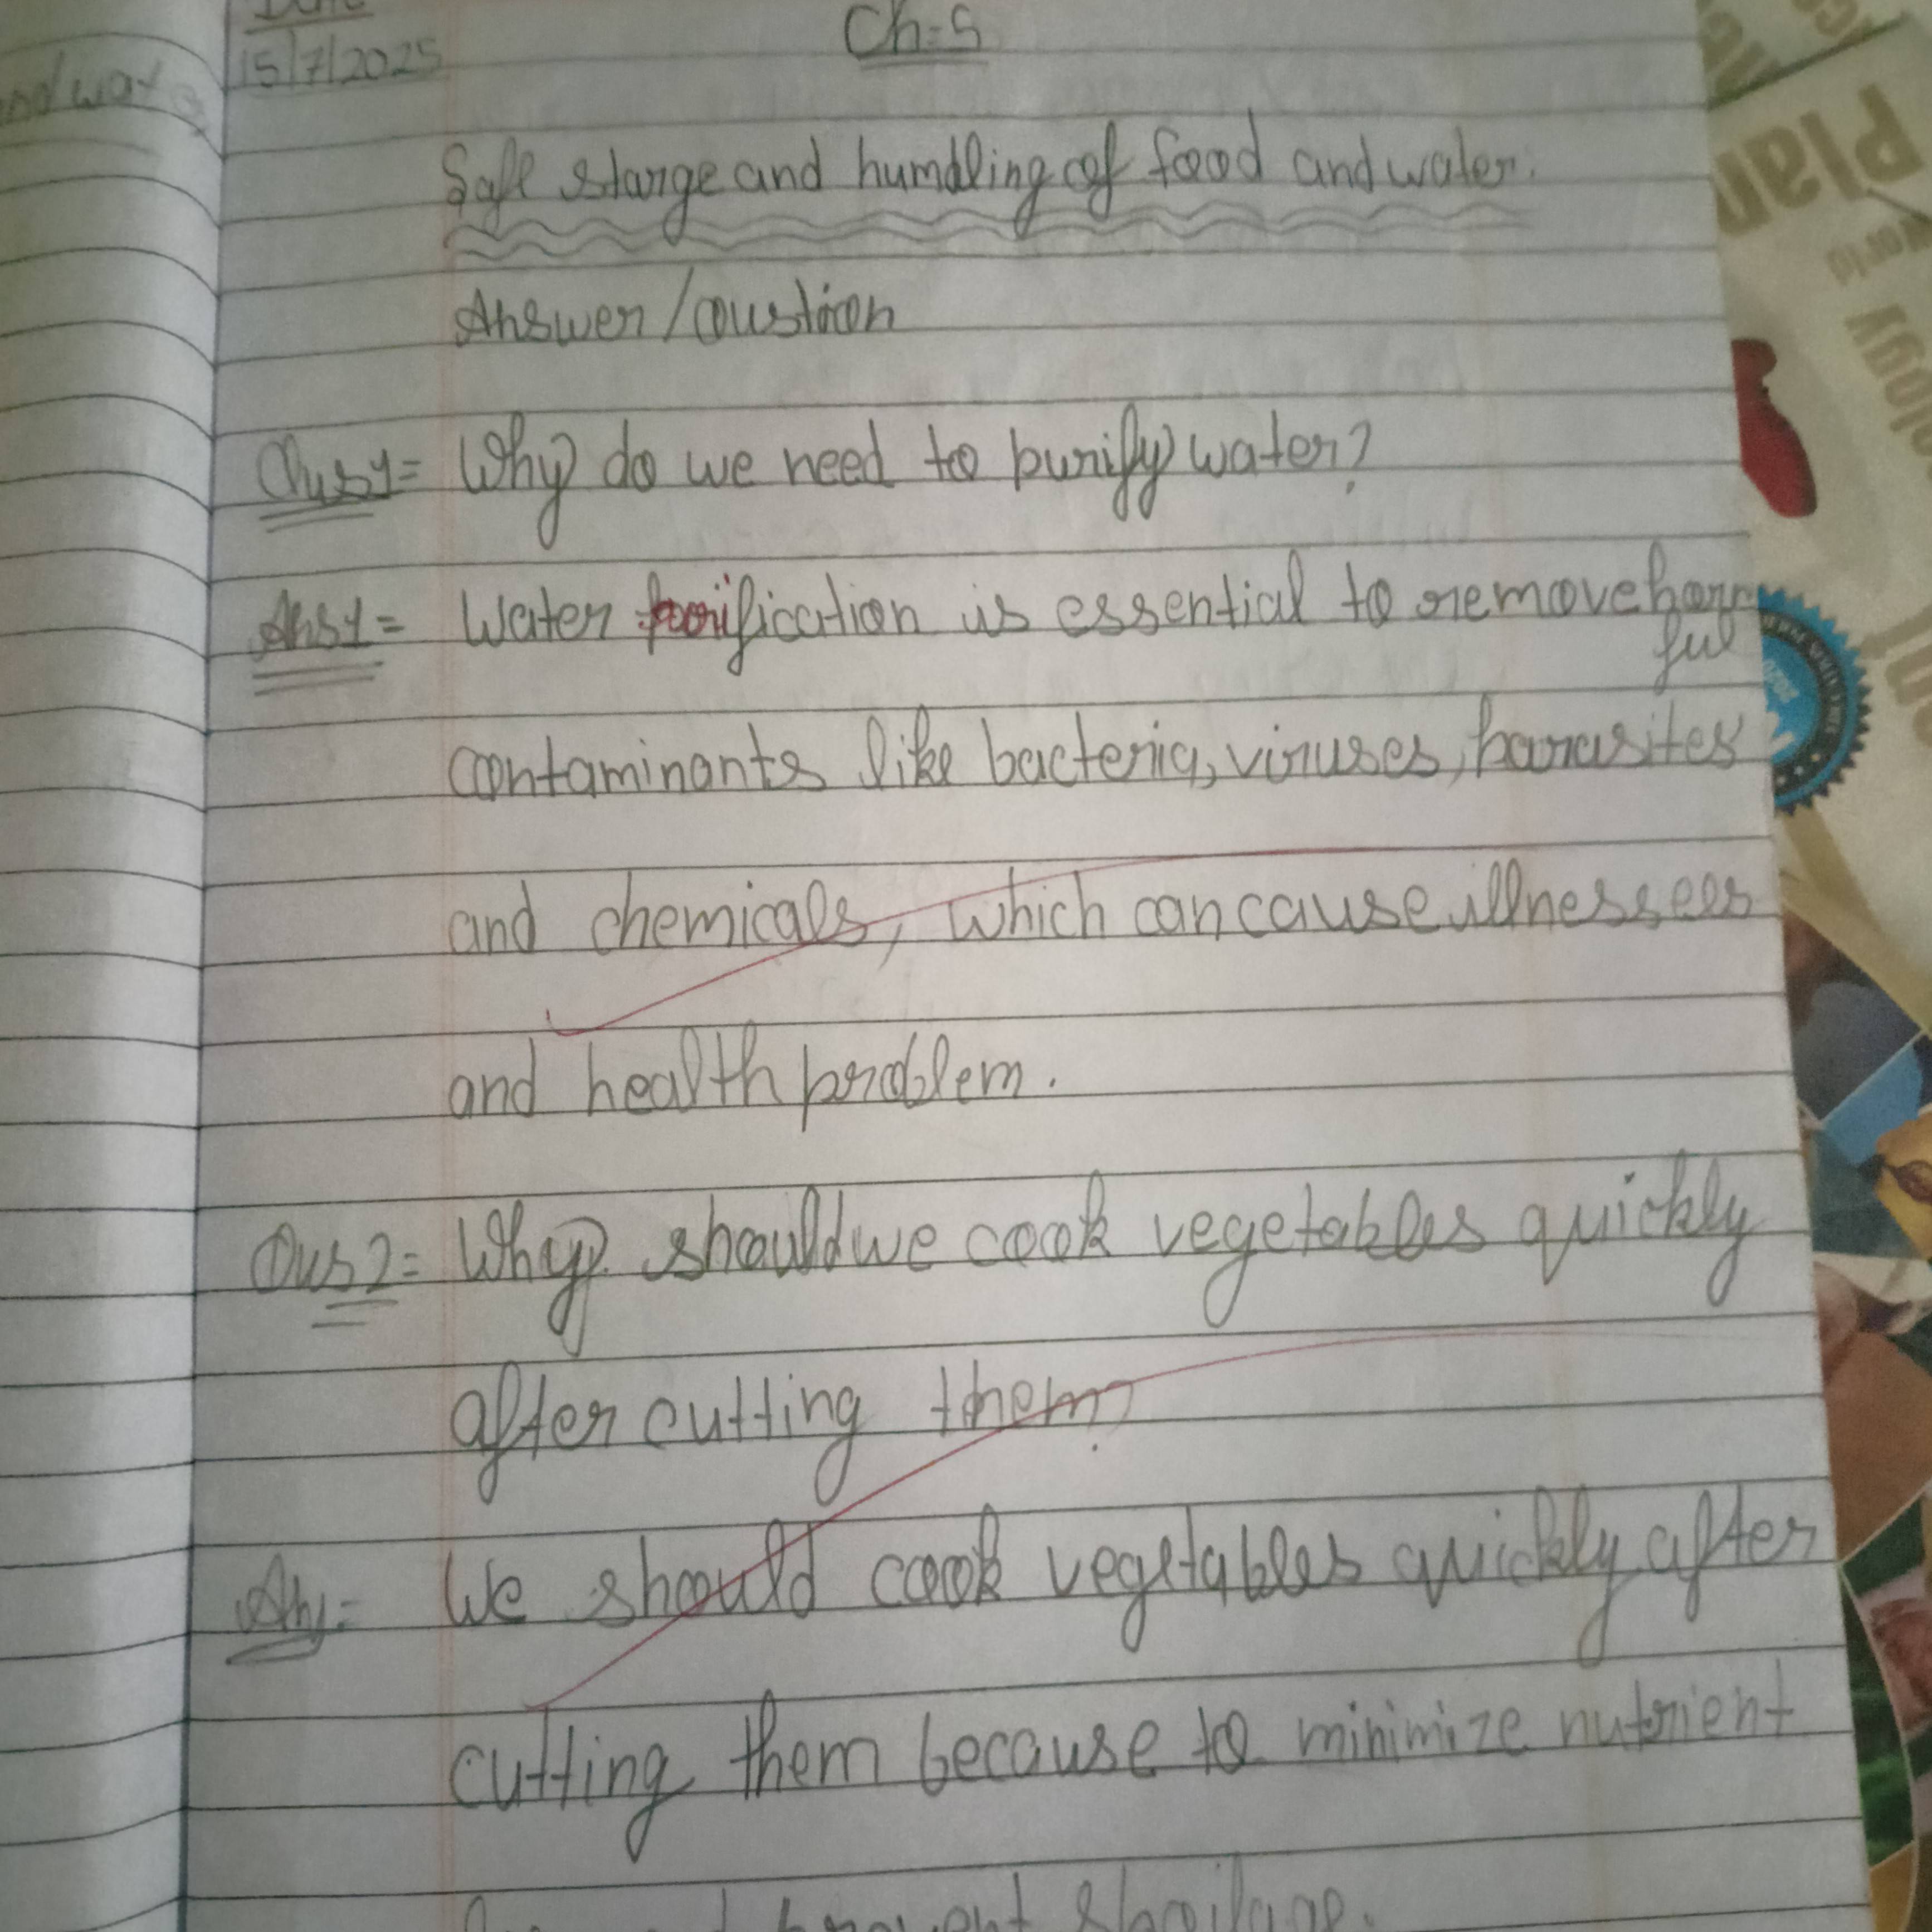 Date
15/7/2025
Ch=5
Safe starge and humdling of food and water.
Answer/Qustion
Qus1= Why do we need to purify water?
Ans1= Water purification is essential to remove harm
ful
contaminants like bacteria, viruses, parasites
and chemicals, which can cause illnessees
and health problem.
Qus2= Why should we cook vegetables quickly
after cutting them?
Ans= We should cook vegetables quickly after
cutting them because to minimize nutrient
prevent spoilage.
and wate
Plan